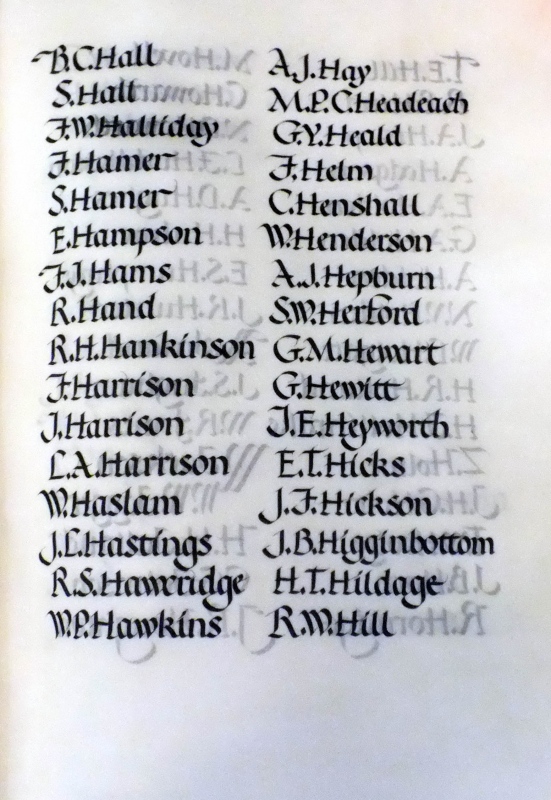 B.C.Hall
S.Hall
F.W.Halliday
F.Hamer
S.Hamer
E.Hampson
F.J.Hams
R.Hand
R.H.Hankinson
F.Harrison
J.Harrison
L.A.Harrison
W.Haslam
J.L.Hastings
R.S.Haweridge
W.P.Hawkins
A.J.Hay
M.P.C.Headeach
G.Y.Heald
F.Helm
C.Henshall
W.Henderson
A.J.Hepburn
S.W.Herford
G.M.Hewart
G.Hewitt
J.E.Heyworth
E.T.Hicks
J.F.Hickson
J.B.Higginbottom
H.T.Hildage
R.W.Hill